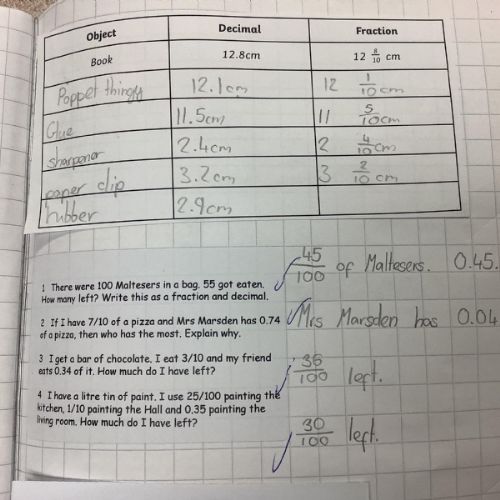 Object Decimal Fraction
Book 12.8cm 12 8/10 cm
Poppet thingy 12.1cm 12 1/10 cm
Glue 11.5cm 11 5/10cm
sharpener 2.4cm 2 4/10 cm
paper clip 3.2cm 3 2/10 cm
rubber 2.9cm
1 There were 100 Maltesers in a bag. 55 got eaten.
How many left? Write this as a fraction and decimal.
45/100 of Maltesers. 0.45.
2 If I have 7/10 of a pizza and Mrs Marsden has 0.74
of a pizza, then who has the most. Explain why.
Mrs Marsden has 0.04
3 I get a bar of chocolate. I eat 3/10 and my friend
eats 0.34 of it. How much do I have left?
36/100 left.
4 I have a litre tin of paint. I use 25/100 painting the
kitchen, 1/10 painting the Hall and 0.35 painting the
living room. How much do I have left?
30/100 left.